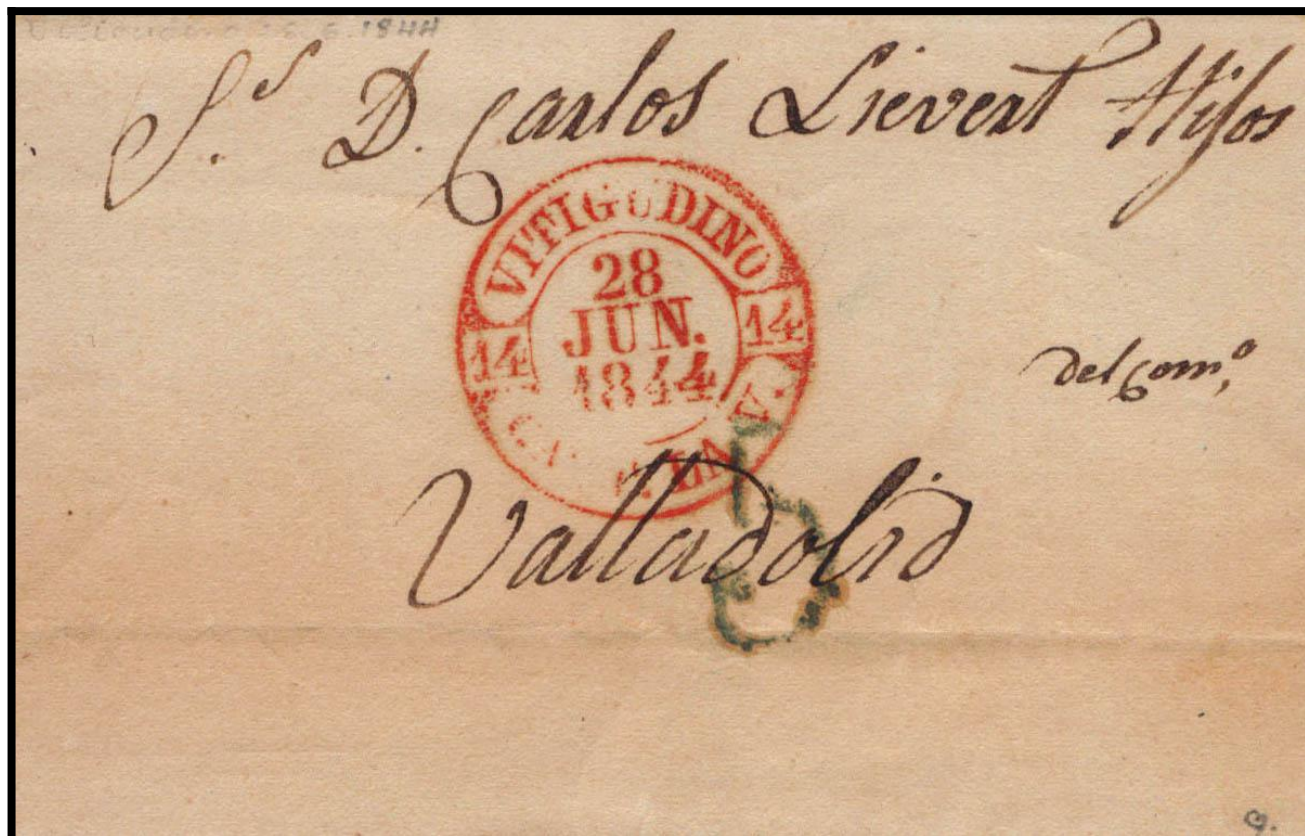 6.1844
S.s D. Carlos Lievert Hijos
VITIGUDINO
28
14 JUN. 14
1844
del Com.o
Valladolid